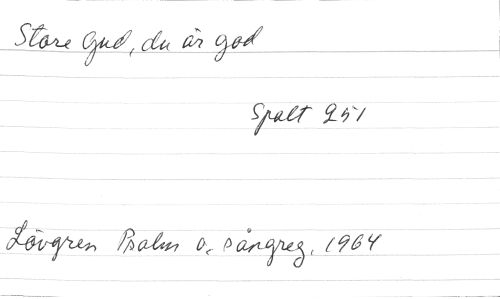 Store Gud, du är god
Spalt 251
Lövgren Psalm o. sångreg. 1964